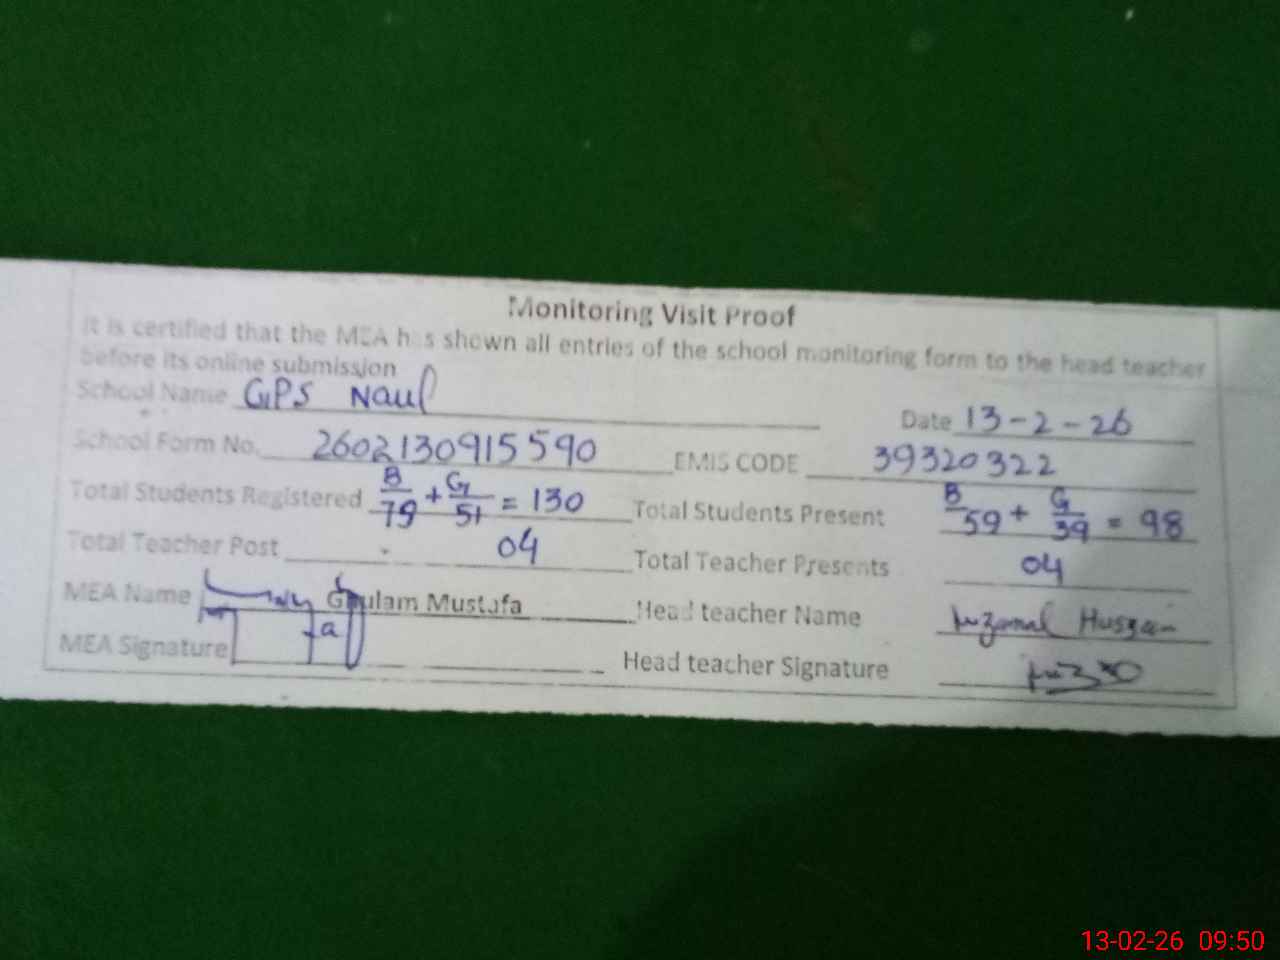 Monitoring Visit Proof
It is certified that the MEA has shown all entries of the school monitoring form to the head teacher
before its online submission
School Name GPS Naul
Date 13-2-26
School Form No. 2602130915590 EMIS CODE 39320322
Total Students Registered B/79 + G/51 = 130 Total Students Present B/59 + G/39 = 98
Total Teacher Post 04 Total Teacher Presents 04
MEA Name Ghulam Mustafa Head teacher Name Husain
MEA Signature Head teacher Signature
13-02-26 09:50